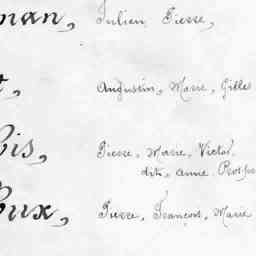 man, Julien, Pierre,
t, Augustin, Marie, Gilles
is, Pierre, Marie, Victor,
dit, Anne, Prosper
oux, Pierre, François, Marie